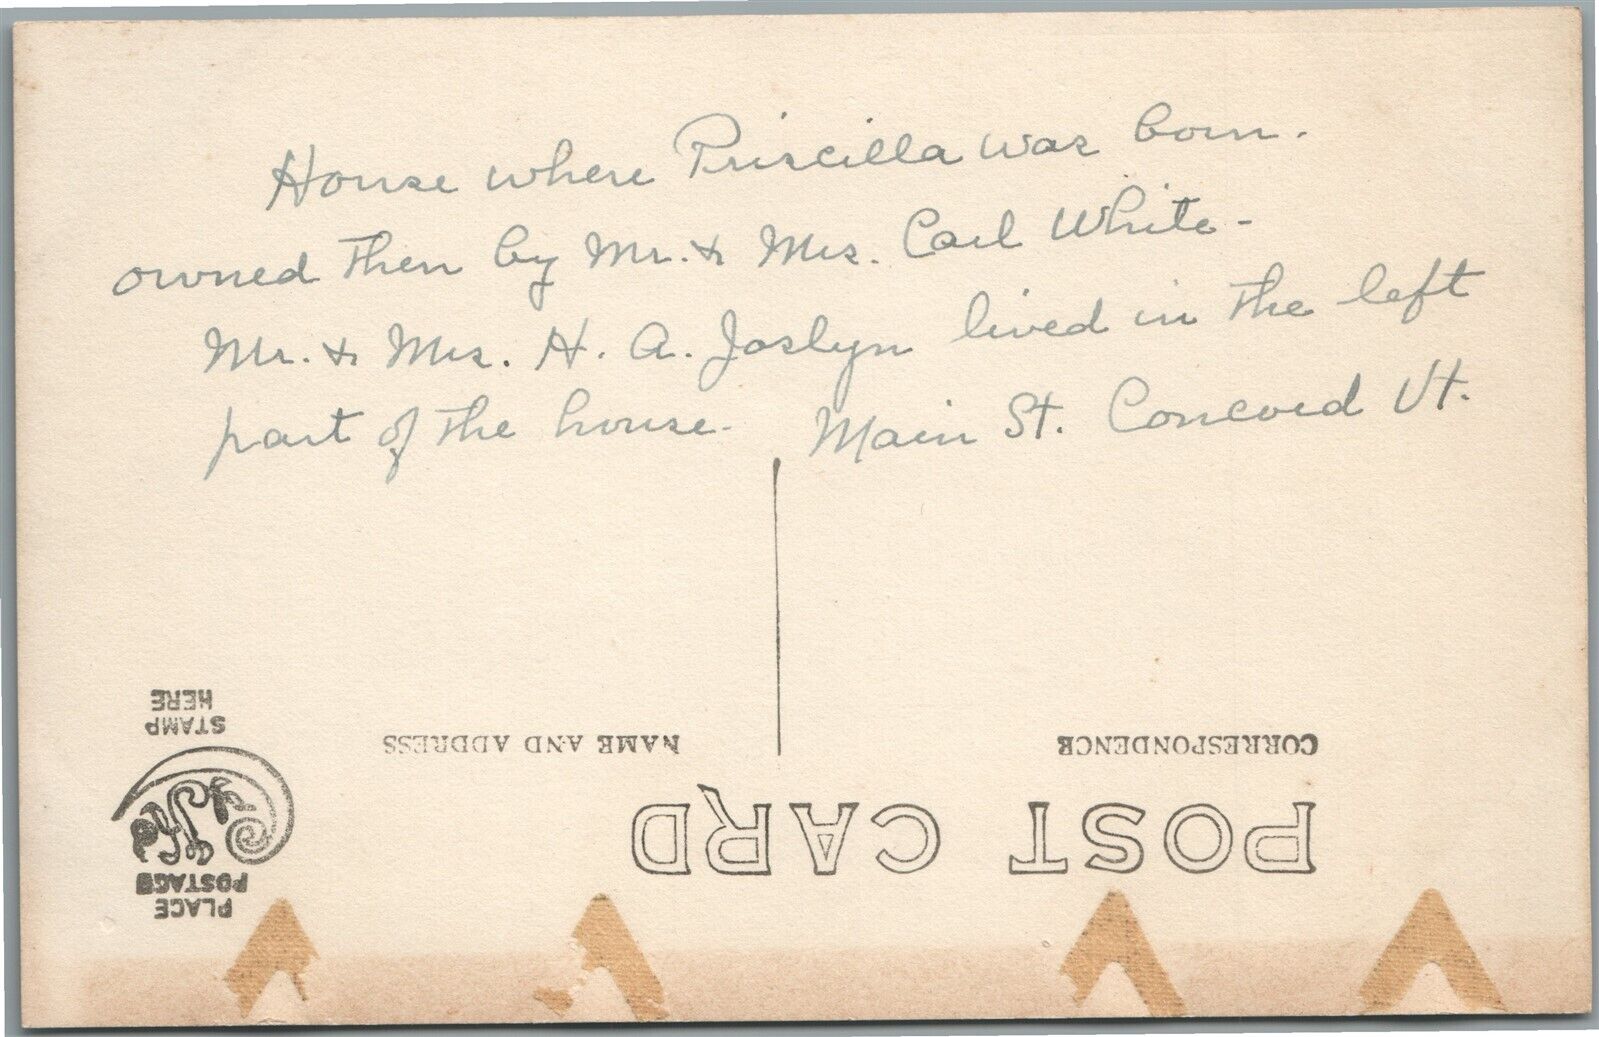 House where Priscilla was born.
owned then by Mr. & Mrs. Carl White -
Mr. & Mrs. H. A. Joslyn lived in the left
part of the house. Main St. Concord Vt.
POST CARD
CORRESPONDENCE
NAME AND ADDRESS
PLACE
POSTAGE
STAMP
HERE